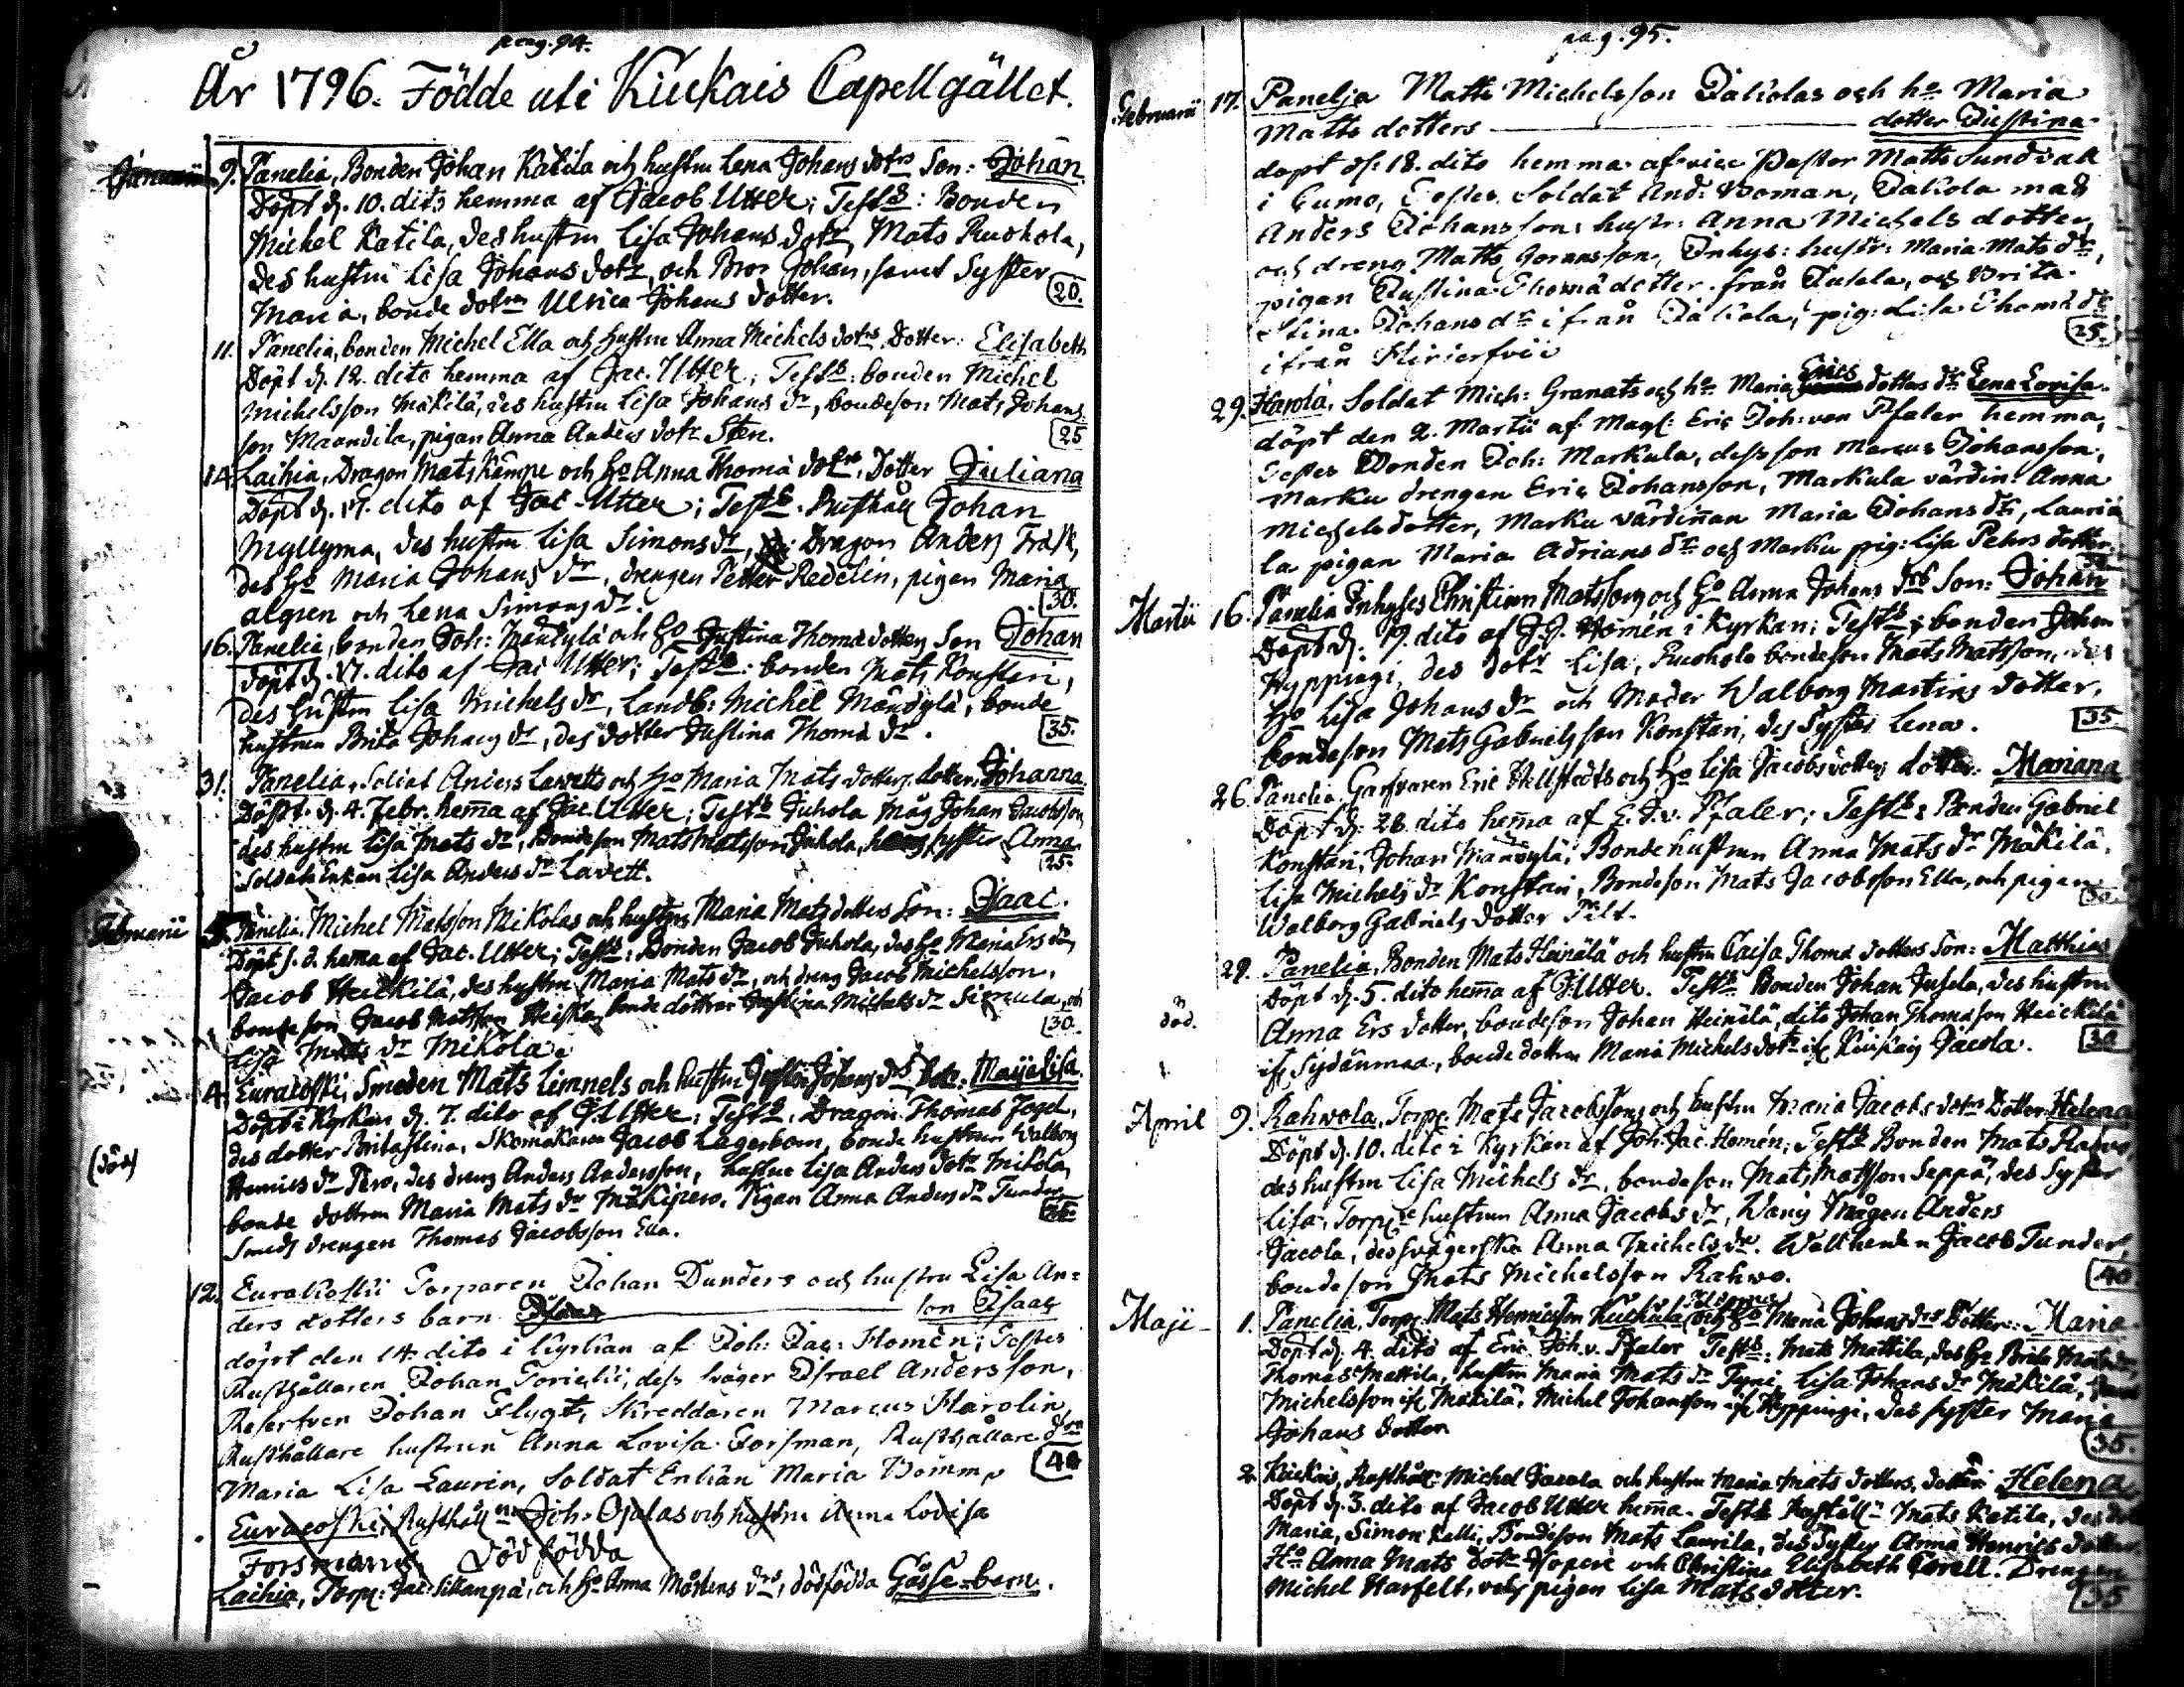 pag. 94.
År 1796. Födde uti Kiukais Capellgället.
Januarii 9. Panelia, Bonden Johan Katila och hustru Lena Johans dotrs Son: Johan
Döpt d. 10. dito hemma af Jacob Utter; Test: Bonden
Michel Katila, des hustru Lisa Johans dotr, Mats Ruohola,
des hustru Lisa Johans dotr, och Bror Johan, samt Syster
Maria, bonde dotren Ulrica Johans dotter. 20.
11. Panelia, bonden Michel Ella och hustru Anna Michels dotrs Dotter: Elisabeth
Döpt d. 12. dito hemma af Jac. Utter; Test: bonden Michel
Michelsson Mäkilä, des hustru Lisa Johans dr, bondeson Mats Johans
son Maandila, pigan Anna Anders dotr Sten. 25
14. Laihia, Dragon Mats Kämpe och Ho Anna Thomä dotrs, Dotter Juliana
Döpt d. 17. dito af Jac. Utter; Test. Rusthåll Johan
Myllyma, des hustru Lisa Simons dr, Dragon Anders Frisk,
des Ho Maria Johans dr, drengen Petter Redelin, pigan Maria
algren och Lena Simons dr. 30.
16. Panelia, bonden Joh: Mändylä och Ho Justina Thomä dotters Son Johan
Döpt d. 17. dito af Jac Utter; Test: bonden Mats Konstari,
des hustru Lisa Michels dr, Landb: Michel Mändylä, bonde
hustrun Brita Johans dr, des dotter Justina Thomä dr. 35.
31. Panelia, Soldat Anders Lavetts och Ho Maria Mats dotters dotter, Johanna
Döpt d. 4. Febr. hema af Jac. Utter; Test Juhola Måg Johan Jacobsson,
des hustru Lisa Mats dr, Bondeson Mats Matsson Juhola, syster Anna
Soldat Enkan Lisa Anders dr Lavett. 25.
Februarii Panelia, Michel Matsson Mikolas och hustrus Maria Mats dotters Son: Isaac.
Döpt s. d. hema af Jac. Utter; Test: Bonden Jacob Juhola, des Ho Maria Ers dr,
Jacob Heickilä, des hustru Maria Mats dr, och dreng Jacob Michelsson,
bondeson Jacob Matsson bonde döttrar Justina Michels dr och
Lisa Mats dr Mikola. 30.
4. Euracoski, Smeden Mats Limnels och hustru Johans drs Dotr: Maija Lisa.
Döpt i Kyrkan d. 7. dito af J. Utter; Test: Dragon Thomas Fogel,
des dotter Britastina, Skomakaren Jacob Lagerbom, bonde hustrun Walborg
(död) Henrics dr Pero, des dreng Anders Andersson, hustru Lisa Anders dotr Mikola,
bonde dottren Maria Mats dr Mäkipero, Pigan Anna Anders dr Tunder
Smeds drengen Thomas Jacobsson Ella. 35
12. Eurakoski Torparen Johan Dunders och hustru Lisa An=
ders dotters barn son Isaac
döpt den 14. dito i kyrkan af Joh: Jac: Homén; Testes
Rusthållaren Johan Torickii, dess svåger Israel Andersson,
Reserfven Johan Flygt, Skreddaren Marcus Harolin,
Rusthållare hustrun Anna Lovisa Forsman, Rusthållare drn
Maria Lisa Laurin, Soldat Enkan Maria Bömm, 40
Euracoski, Rusthåll Joh: Ojalas och hustru Anna Lovisa
Forsmans Dödfödda
Laihia, Torp: Jac: Sillanpä, och Ho Anna Mårtens drs, dödfödda Gosse-barn.
pag. 95.
Februarii 17. Panelja Matts Michelsson Jakolas och ho Maria
Matts dotters dotter Justina
döpt d: 18. dito hemma af vice Pastor Matts Sundvall
i Eumo, Testes Soldat And: Boman, Jakola måg
Anders Johansson, hustr: Anna Michels dotter,
och dreng Matts Göransson, Inhys: hustr: Maria Mats dr,
pigan Justina Thomä dotter från Jusela, och Brita
Stina Johans dr ifrån Jakola, pig: Lisa Thomä dr
ifrån Hirierfvii 25.
29. Harola, Soldat Mich: Granats och ho Maria Erics dotters dr Lena Lovisa.
döpt den 2. Martii af Mag: Eric Joh: von Pfaler hemma,
Testes Bonden Joh: Markula, dess son Marcus Johansson,
Marku drengen Eric Johansson, Markula värdin: Anna
Michelsdotter, Marku värdinnan Maria Johans dr, Lauri
la pigan Maria Adrians dr och Marku pig: Lisa Pehrs dotter.
Martii 16. Panelia Inhyses Christian Matssons och Ho Anna Johans drs Son: Johan
Döpt d. 19. dito af J. J. Homén i Kyrkan; Test: bonden Johan
Hyppingi, des dotr Lisa, Ruohola bondeson Mats Matsson, des
Ho Lisa Johans dr och Moder Walborg Martins dotter,
bondeson Mats Gabrielsson Konstari, des Syster Lena. 35.
26. Panelia, Garfvaren Eric Hellstedts och Ho Lisa Jacobsdotters dotter: Mariana
Döpt d: 28. dito hema af E. J. v. Pfaler; Test: Bonden Gabriel
Konstari, Johan Mändylä, Bonde hustrun Anna Mats dr Mäkilä,
Lisa Michels dr Konstari, Bondeson Mats Jacobsson Ella, och pigan
Walborg Gabriels dotter Pilt.
29. Panelia, Bonden Mats Heinälä och hustru Caisa Thomä dotters Son: Matthias
Döpt d. 5. dito hema af J. Utter. Test: Bonden Johan Jusela, des hustru
död. Anna Ers dotter, bondeson Johan Heinälä, dito Johan Thomasson Heickilä
if: Sydänmaa, bonde dottren Maria Michels dotr if: Kiukais Jacola. 30
April 9. Rahvola, Torp: Mats Jacobssons och hustru Maria Jacobs dotrs Dotter Helena
Döpt d. 10. dito i Kyrkan af Joh. Jac. Homén; Test Bonden Mats Rahvo,
des hustru Lisa Michels dr, bondeson Mats Mattsson Seppä, des Syster
Lisa, Torp: hustrun Anna Jacobs dr, Mågen Anders
Jacola, des svägerska Anna Michels dr. Jacob Tunder,
bondeson Mats Michelsson Rahvo. 40
Maji 1. Panelia, Torp: Mats Henricsson och Ho Maria Johans drs Dotter: Maria
Döpt d. 4. dito af Eric Joh. v. Pfaler Test: Mats Mattila, des Ho Brita
Thomas Mattila, hustru Maria Mats dr Tyni, Lisa Johans dr Mäkilä,
Michelsson if: Mäkilä, Michel Johansson if: Hyppingi, des syster Maria
Johans dotter. 35.
2. Kiukais, Rusthåll: Michel Jacola och hustru Maria Mats dotters, dotter: Helena
Döpt d. 3. dito af Jacob Utter hema. Test: Rusthåll: Mats Katila, des
Maria, Simon Kelli, Bondeson Mats Laurila, des Syster Anna Henrics dotter
Ho Anna Mats dotr och Christina Elisabeth Forell. Drengen
Michel Harfelt, och pigan Lisa Mats dotter. 35